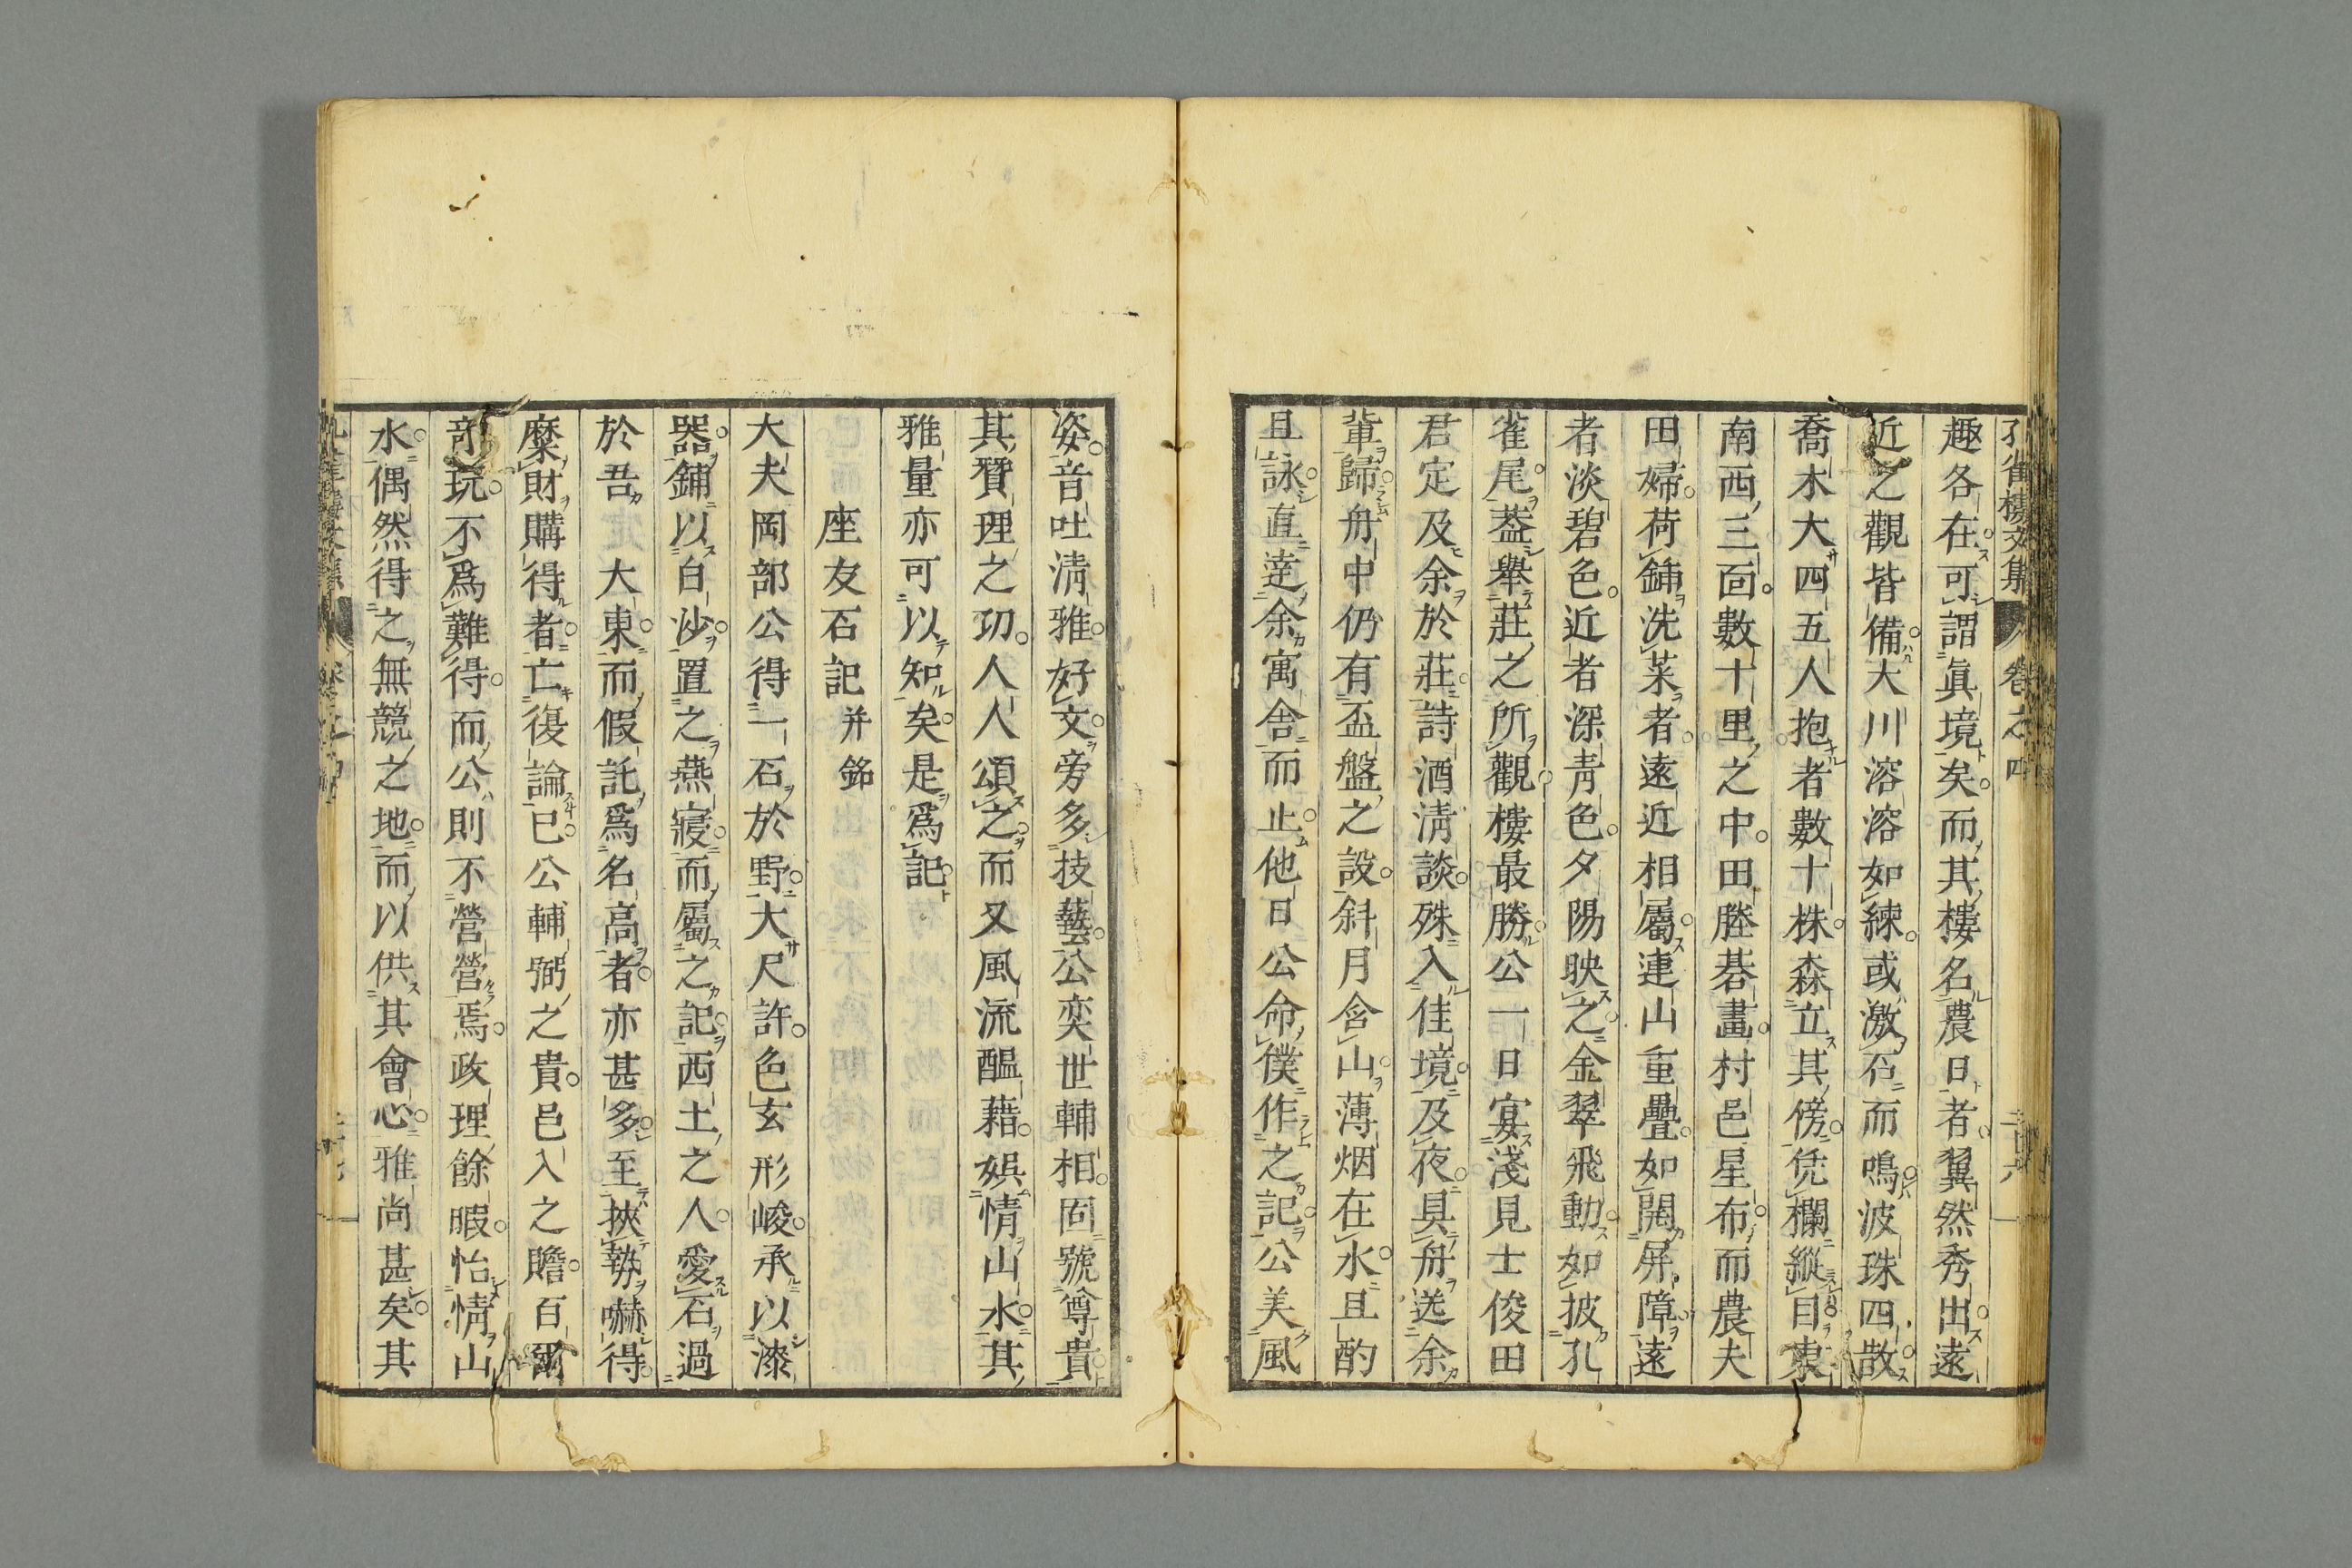 孔雀樓文集 卷之四
趣各在可謂眞境矣而其樓名農日者翼然秀出遠
近之觀皆備大川溶溶如練或激石而鳴波珠四散
喬木大四五人抱者數十株森立其傍凭欄縱目東
南西三面數十里之中田塍碁畫村邑星布而農夫
田婦荷鋪洗菜者遠近相屬連山重疊如開屏障遠
者淡碧色近者深靑色夕陽映之金翠飛動如披孔
雀尾葢舉莊之所觀樓最勝公一日宴淺見士俊田
君定及余於莊詩酒淸談殊入佳境及夜具舟送余
輩歸舟中仍有盃盤之設斜月含山薄烟在水且酌
且詠直達余寓舍而止他日公命僕作之記公美風
姿音吐淸雅好文旁多技藝公奕世輔相固號尊貴
其賛理之功人人頌之而又風流醞藉娯情山水其
雅量亦可以知矣是爲記
座友石記 并銘
大夫岡部公得一石於野大尺許色玄形峻承以漆
器鋪以白沙置之燕寢而屬之記西土之人愛石過
於吾大東而假託爲名高者亦甚多至挾勢嚇得
糜財購得者亡復論已公輔弼之貴邑入之贍百爾
奇玩不爲難得而公則不營營焉政理餘暇怡情山
水偶然得之無競之地而以供其會心雅尚甚矣其